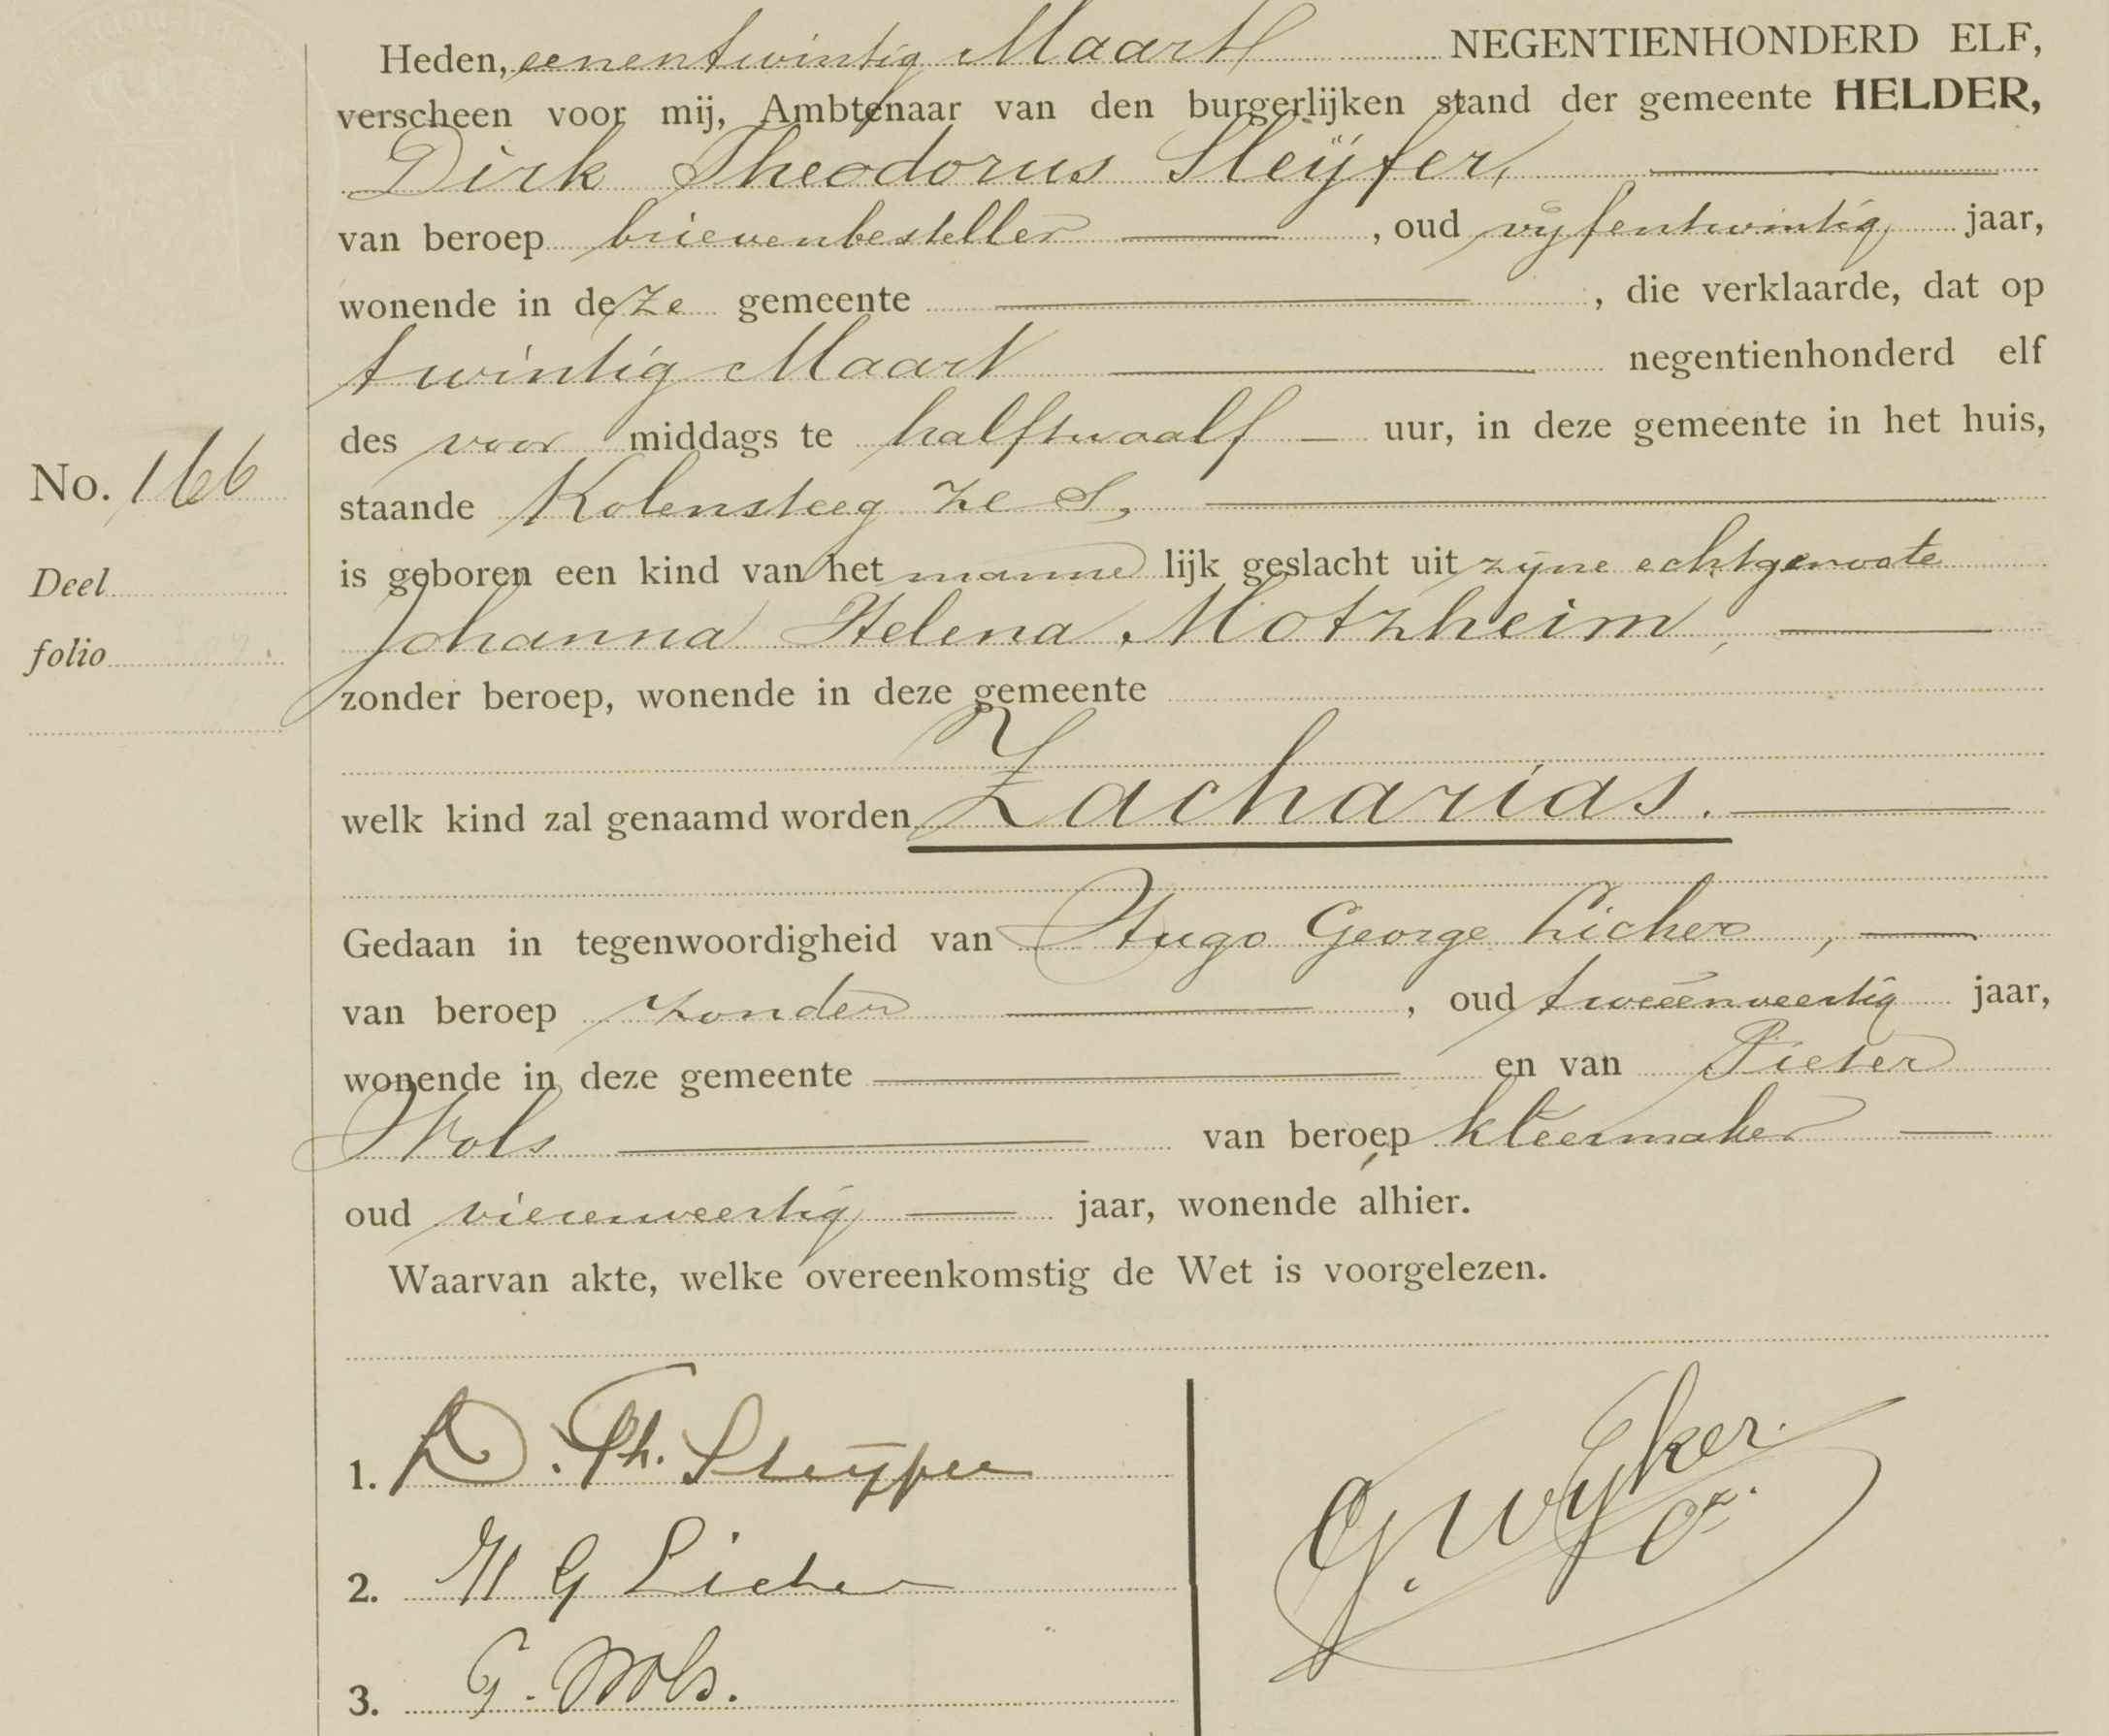 Heden, eenentwintig Maart NEGENTIENHONDERD ELF,
verscheen voor mij, Ambtenaar van den burgerlijken stand der gemeente HELDER,
Dirk Theodorus Sleÿfer,
van beroep brievenbesteller, oud vyfentwintig jaar,
wonende in deze gemeente, die verklaarde, dat op
twintig Maart negentienhonderd elf
des voor middags te halftwaalf uur, in deze gemeente in het huis,
No. 166
staande Kolensteeg
Deel
is geboren een kind van het manne lijk geslacht uit zyne echtgenoote
folio
Johanna Helena Motzheim,
zonder beroep, wonende in deze gemeente
welk kind zal genaamd worden Zacharias.
Gedaan in tegenwoordigheid van Hugo George Licher,
van beroep zonder, oud tweeënveertig jaar,
wonende in deze gemeente en van Pieter
Wols van beroep kleermaker
oud vierenveertig jaar, wonende alhier.
Waarvan akte, welke overeenkomstig de Wet is voorgelezen.
1. D. Th. Sleÿfer
2. H G Licher
3. Wols.
G. Wyker